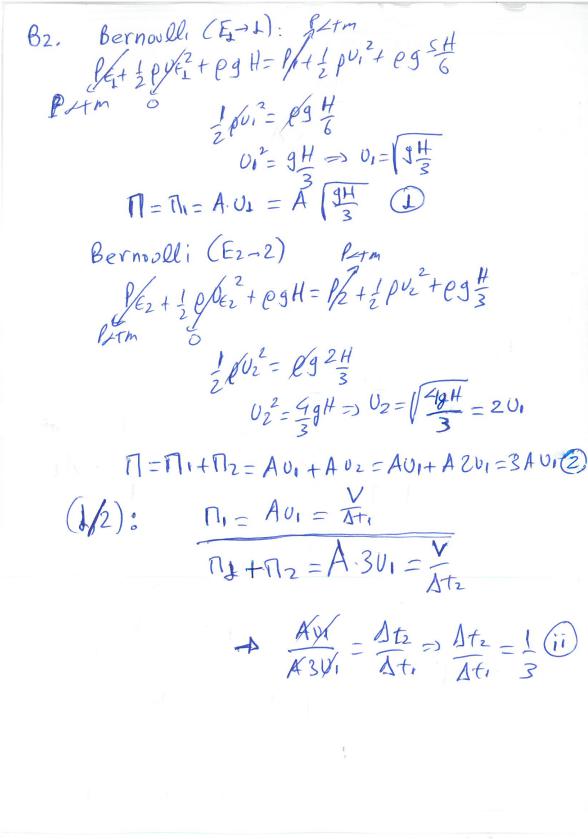 B2. Bernoulli (E₁→1): Pατm
Pε₁ + 1/2 ρυε₁² + ρgH = P₁ + 1/2 ρυ₁² + ρg 5H/6
Pατm 0
1/2 ρυ₁² = ρg H/6
υ₁² = gH/3 ⇒ υ₁ = √(gH/3)
Π = Π₁ = A·υ₁ = A √(gH/3) (1)
Bernoulli (E2→2) Pατm
Pε₂ + 1/2 ρυε₂² + ρgH = P₂ + 1/2 ρυ₂² + ρg H/3
Pατm 0
1/2 ρυ₂² = ρg 2H/3
υ₂² = 4/3 gH ⇒ υ₂ = √(4gH/3) = 2υ₁
Π = Π₁ + Π₂ = Aυ₁ + Aυ₂ = Aυ₁ + A2υ₁ = 3Aυ₁ (2)
(1/2): Π₁ = Aυ₁ = V/Δt₁
Π₁ + Π₂ = A·3υ₁ = V/Δt₂
→ Aυ₁/A3υ₁ = Δt₂/Δt₁ ⇒ Δt₂/Δt₁ = 1/3 (ii)